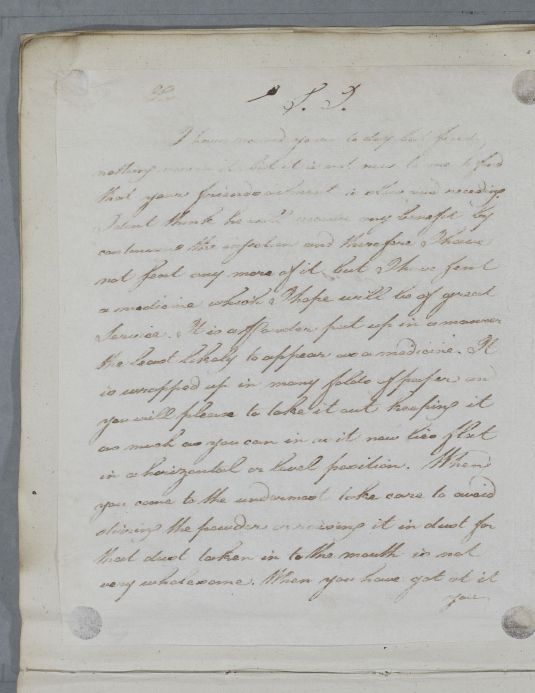 S. J.
I have received yours to day but find
nothing more in it but it is not new to me to find
that your friends ailment is slow and receding
I dont think he will receive any benefit by
continuing the infusion and therefore I have
not sent any more of it but I have sent
a medicine which I hope will be of great
Service. It is a powder put up in a manner
the least likely to appear as a medicine. It
is wrapped up in many folds of paper and
you will please to take it out keeping it
as much as you can in as it now lies flat
in a horizontal or level position. When
you come to the undermost take care to avoid
the powder or raising it in dust for
that dust taken in to the mouth is not
very wholesome. When you have got at it
you